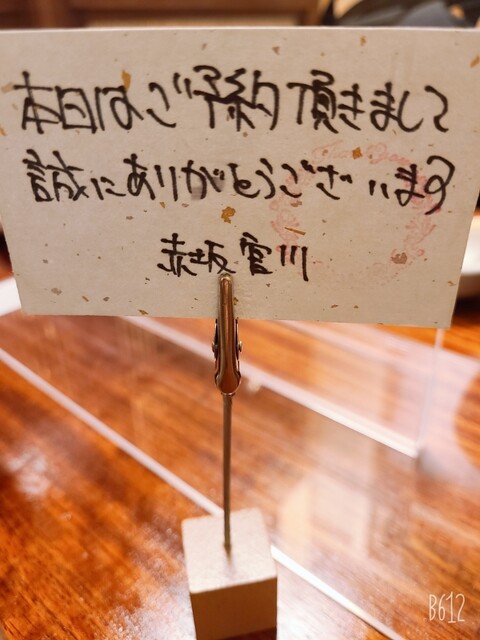 本日はご予約頂きまして
誠にありがとうございます
赤坂 宮川
B612